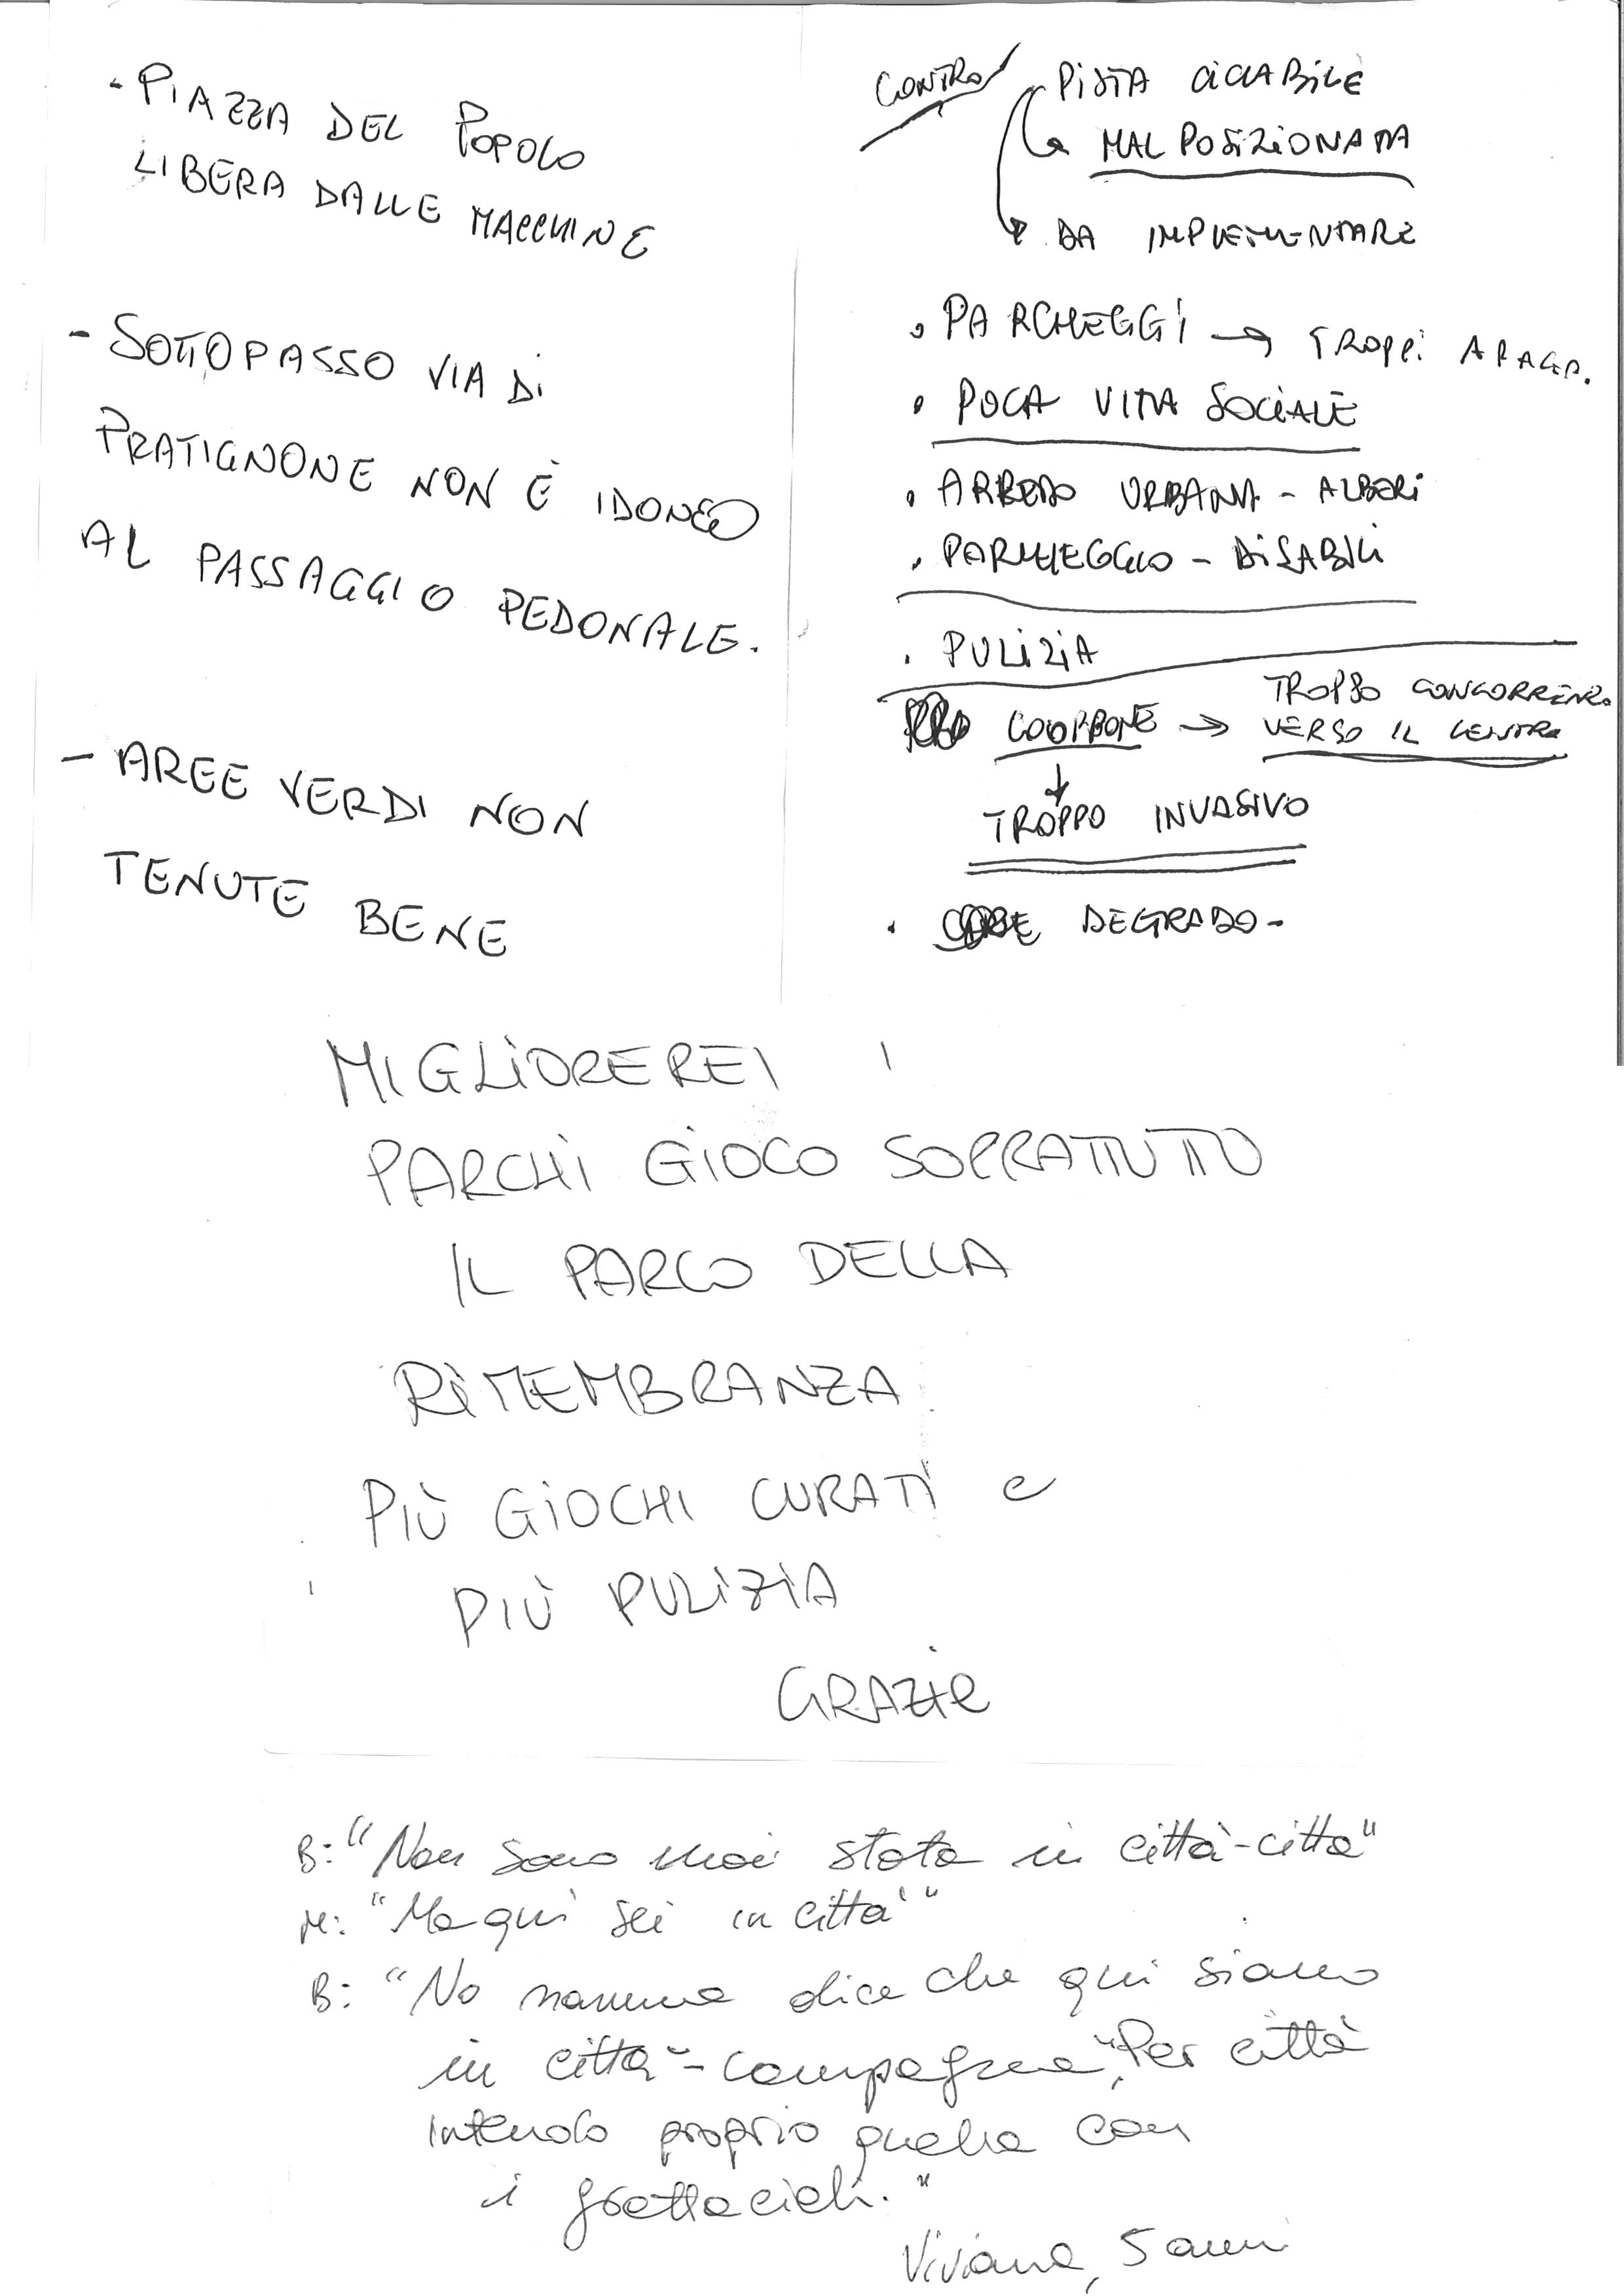 - PIAZZA DEL POPOLO
LIBERA DALLE MACCHINE
- SOTTOPASSO VIA DI
PRATIGNONE NON È IDONEO
AL PASSAGGIO PEDONALE.
- AREE VERDI NON
TENUTE BENE
CONTRO
PISTA CICLABILE
MAL POSIZIONATA
DA IMPLEMENTARE
• PARCHEGGI → TROPPI A PAGA.
• POCA VITA SOCIALE
• ARREDO URBANA - ALBERI
• PARCHEGGIO - DISABILI
• PULIZIA
→ TROPPO CONCORRENZ.
VERSO IL CENTRO
TROPPO INVASIVO
• DEGRADO -
MIGLIOREREI I
PARCHI GIOCO SOPRATTUTTO
IL PARCO DELLA
RIMEMBRANZA
PIÙ GIOCHI CURATI e
PIÙ PULIZIA
GRAZIE
B: "Non sono mai stata in città-città"
M: "Ma qui sei in città"
B: "No mamma dice che qui siamo
in città-campagna". "Per città
intendo proprio quella con
i grattacieli."
Viviana, 5 anni